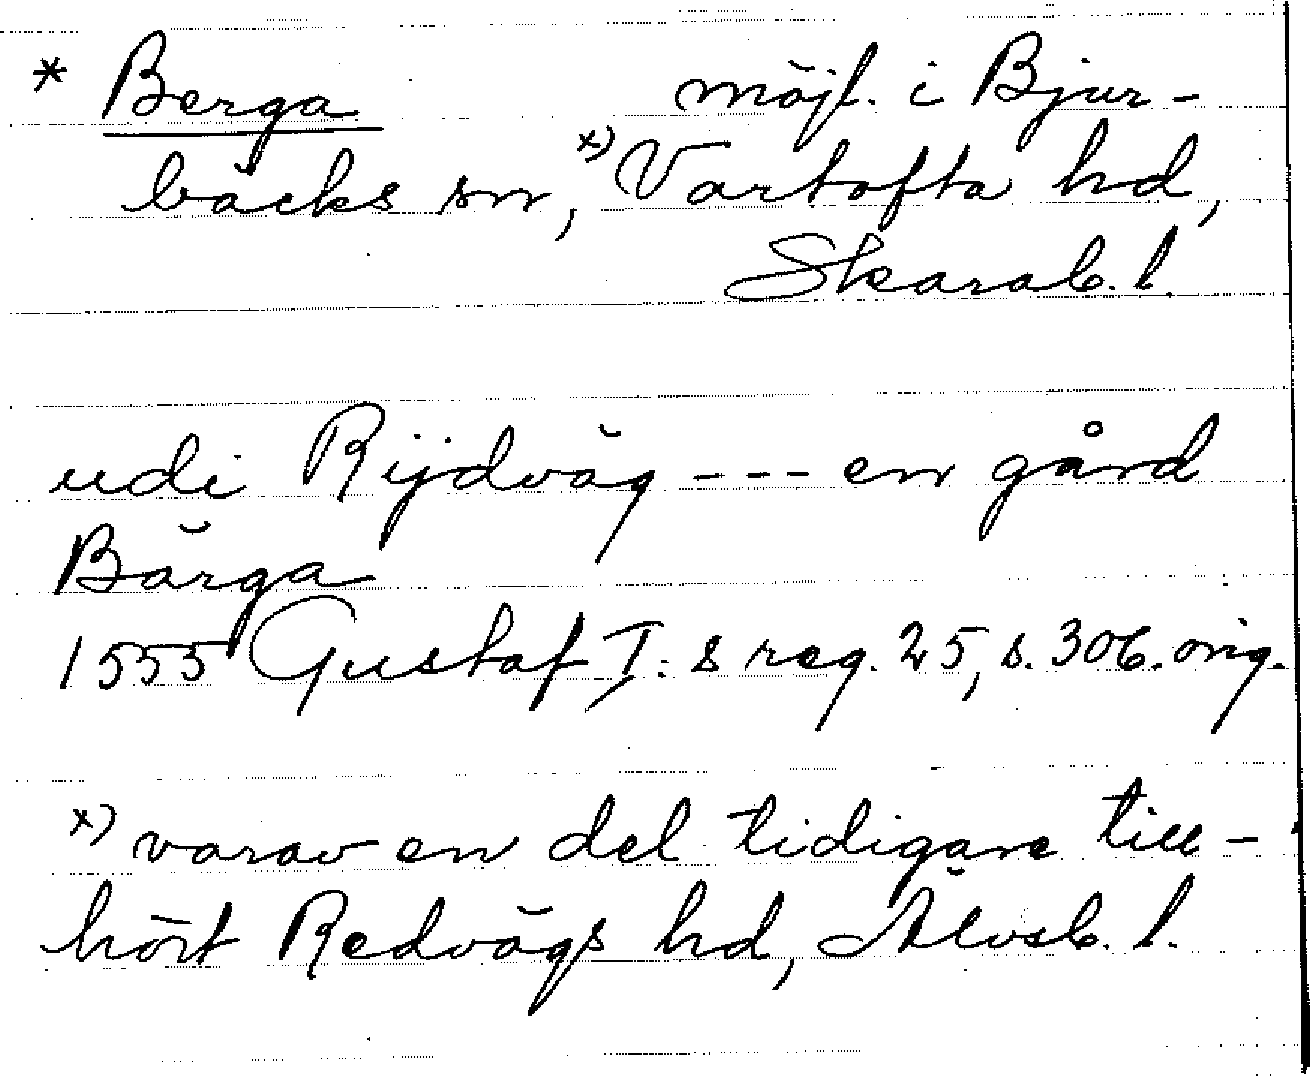 * Berga möjl. i Bjur-
bäcks sn, x) Vartofta hd,
Skarab. l.
udi Rijdväg --- en gård
Bärga
1555 Gustaf I:s reg. 25, s. 306. orig.
x) varav en del tidigare till-
hört Redvägs hd, Älvsb. l.